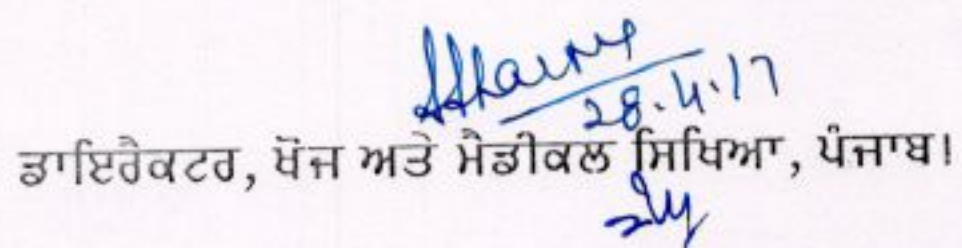 28.4.17
ਡਾਇਰੈਕਟਰ, ਖੋਜ ਅਤੇ ਮੈਡੀਕਲ ਸਿਖਿਆ, ਪੰਜਾਬ।